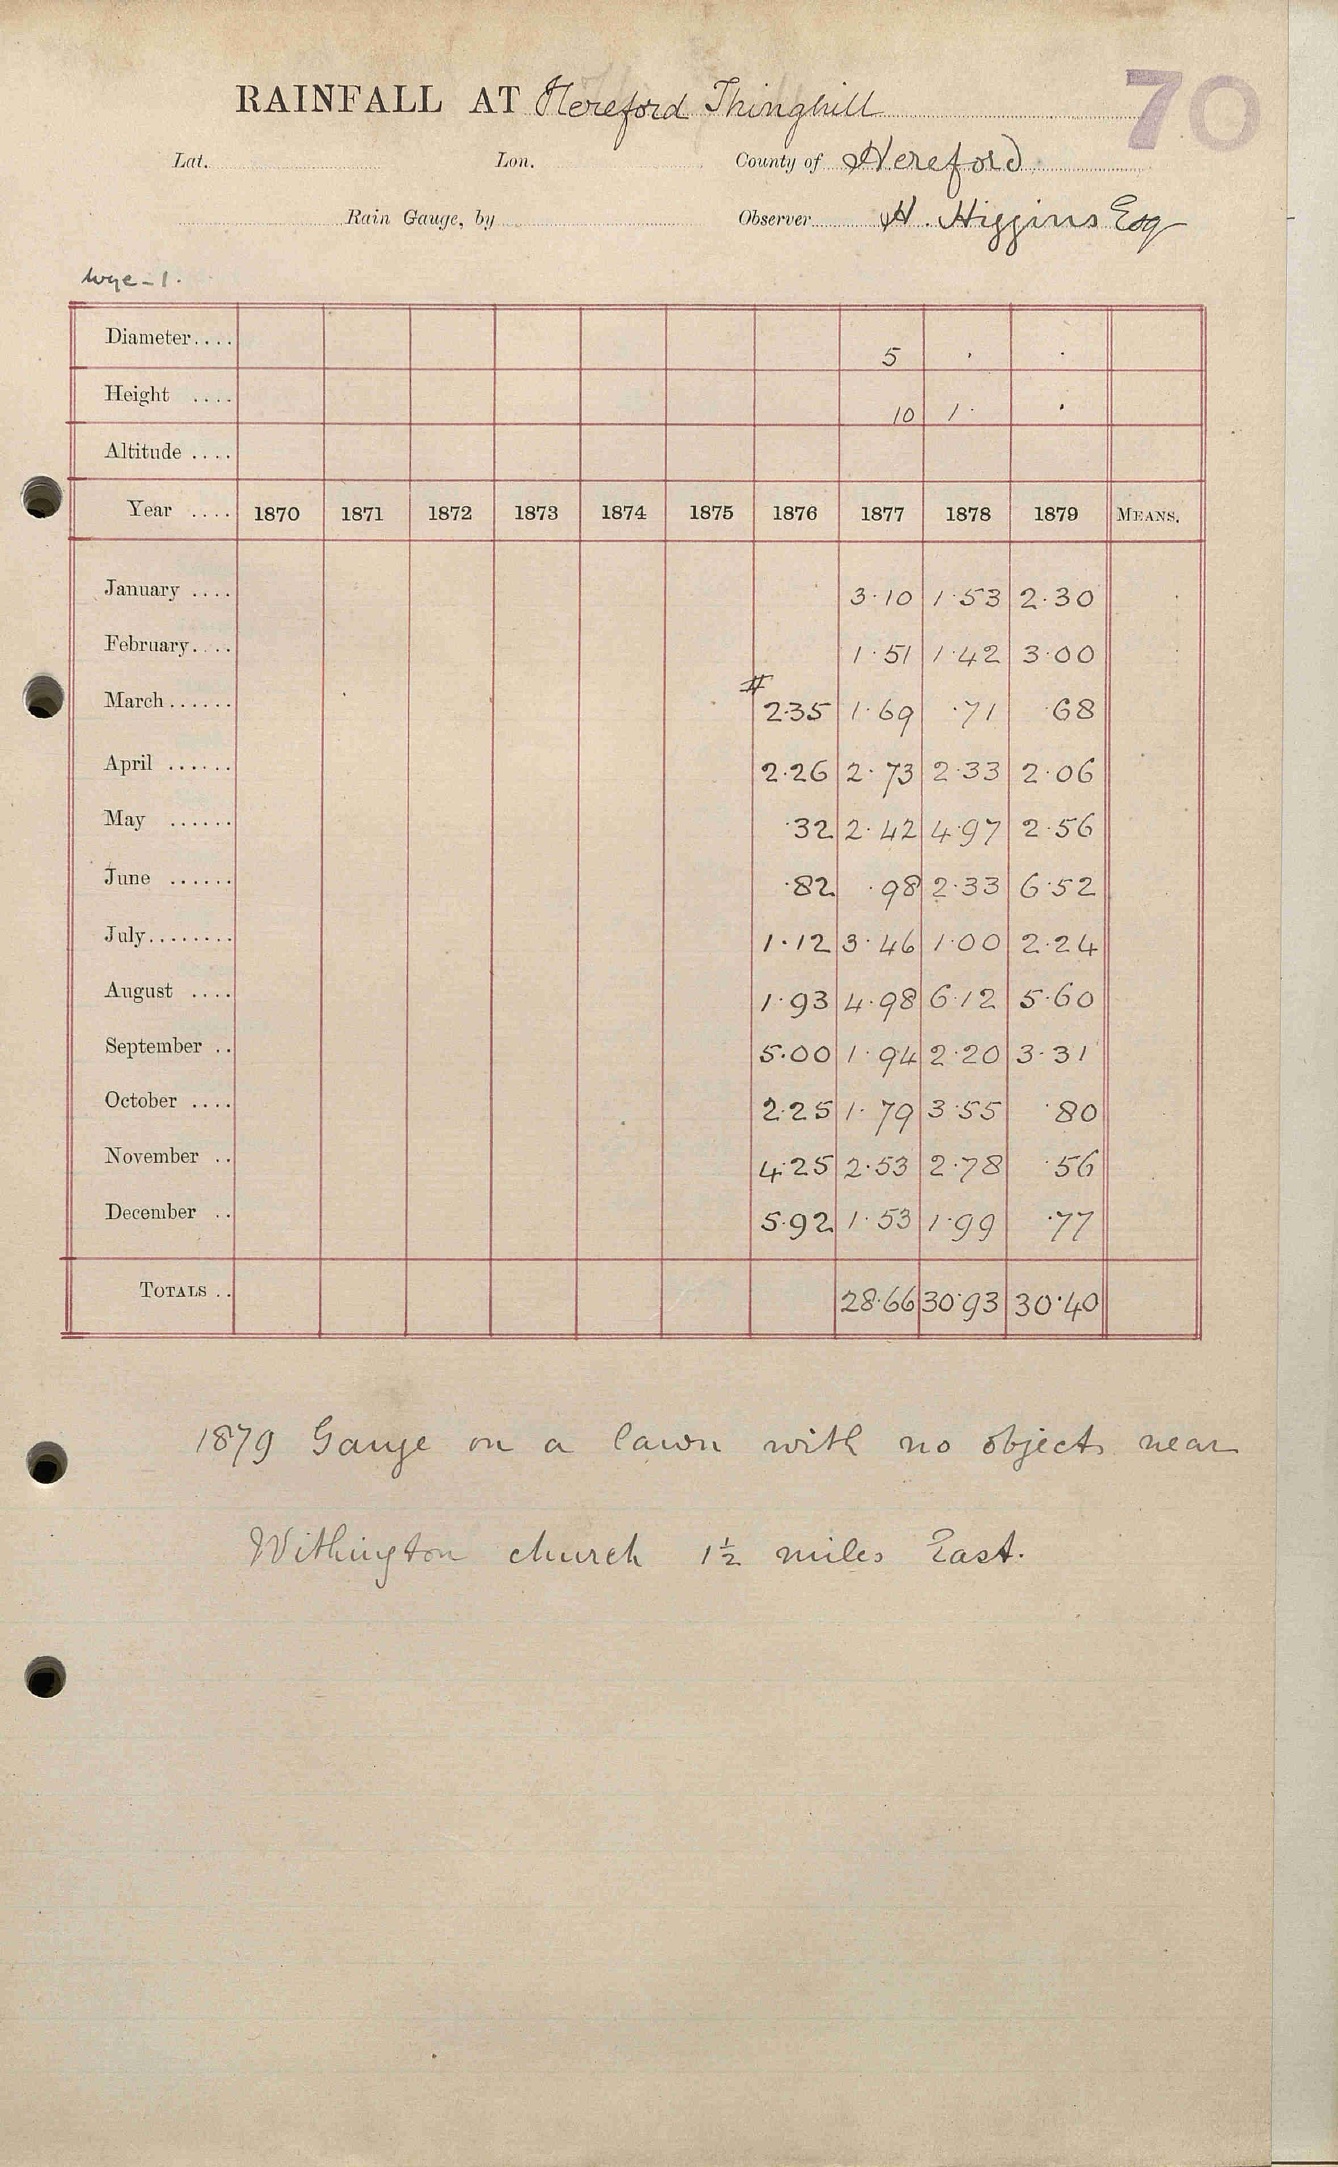 70
RAINFALL AT Hereford Thinghill
Lat. Lon. County of Hereford
Rain Gauge, by Observer H. Higgins Esq
Wye - 1.
Diameter.... 5 . .
Height .... 10 1 .
Altitude ....
Year .... 1870 1871 1872 1873 1874 1875 1876 1877 1878 1879 MEANS.
January .... 3.10 1.53 2.30
February.... 1.51 1.42 3.00
March...... # 2.35 1.69 .71 .68
April ...... 2.26 2.73 2.33 2.06
May ...... .32 2.42 4.97 2.56
June ...... .82 .98 2.33 6.52
July........ 1.12 3.46 1.00 2.24
August .... 1.93 4.98 6.12 5.60
September .. 5.00 1.94 2.20 3.31
October .... 2.25 1.79 3.55 .80
November .. 4.25 2.53 2.78 .56
December .. 5.92 1.53 1.99 .77
TOTALS .. 28.66 30.93 30.40
1879 Gauge on a lawn with no objects near
Withington church 1½ miles East.